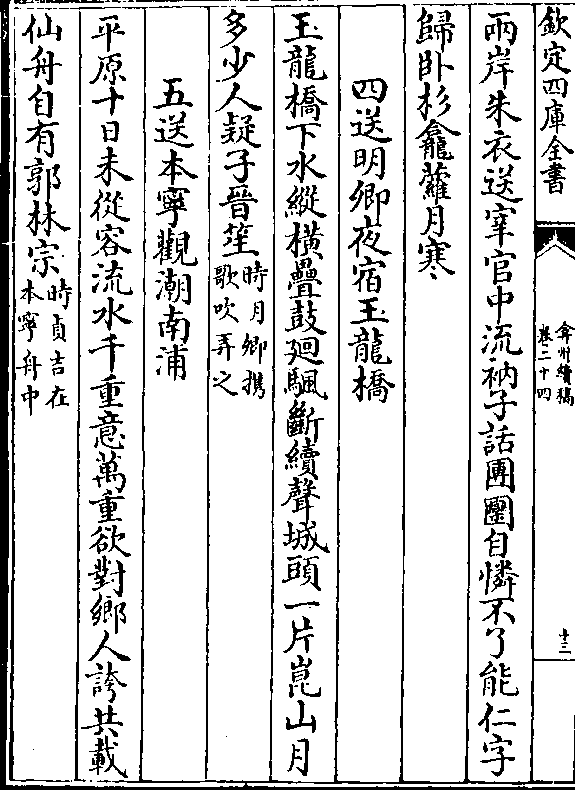 欽定四庫全書
弇州續稿
卷二十四
十三
兩岸朱衣送宰官中流衲子話團圞自憐不了能仁字
歸卧杉龕蘿月寒
四送明卿夜宿玉龍橋
玉龍橋下水縱橫疊鼓廻颿斷續聲城頭一片崑山月
多少人疑子晉笙
時月卿携
歌吹弄之
五送本寧觀潮南浦
平原十日未從容流水千重意萬重欲對鄉人誇共載
仙舟自有郭林宗
時貞吉在
本寧舟中